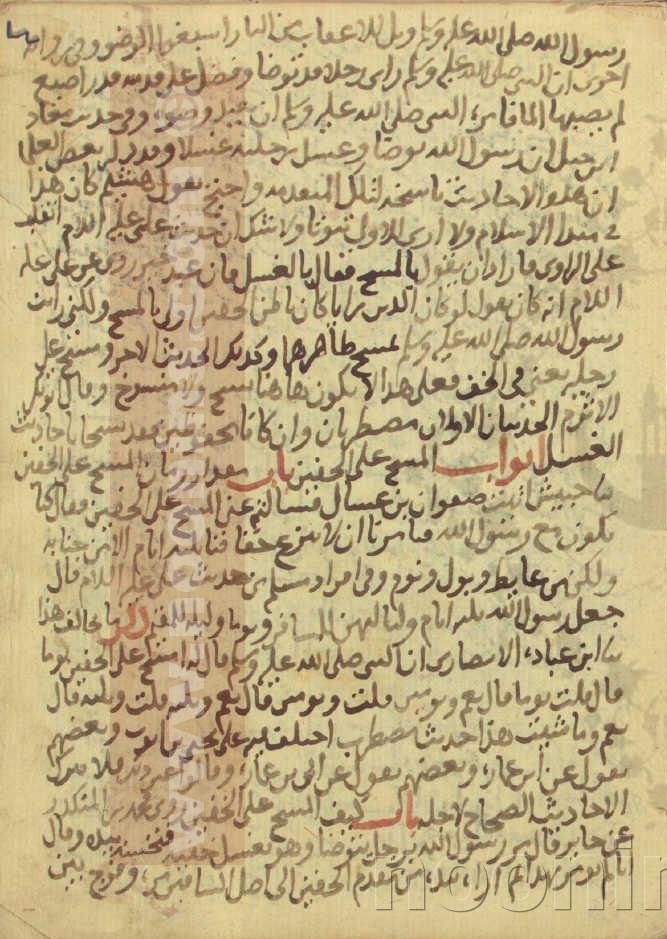 رسول الله صلى الله عليه وسلم ويل للاعقاب من النار اسبغوا الوضو وفى روايه
اخرى ان النبى صلى الله عليه وسلم راى رجلا قد توضا وفضل على قدمه قدر اصبع
لم يصبها الما فامره النبى صلى الله عليه وسلم ان يعيد وضوه وفى حديث معاذ
ابن جبل ان رسول الله توضا وغسل رجليه غسلا وقد راى بعض العلما
ان هذه الاحاديث ناسخه لتلك المتقدمه واحتج بقول هشيم كان هذا
فى مبدا الاسلام ولا ارى للاول ثبوتا ولا شك ان حديث على عليه اللام
على الراوى فاراد ان يقول بالمسح فقال بالغسل فان عبد خير روى عن على عليه
اللام انه كان يقول لو كان الدين برايا كان باطن الخفين اولى بالمسح ولكنى رايت
رسول الله صلى الله عليه وسلم يمسح ظاهرهما وكذلك الحديث الاخر ومسح على
رجليه يعنى فى الخف فعلى هذا لا يكون هاهنا ناسخ ولا منسوخ وقال ابو بكر
الاثرم الحديثان الاولان مضطربان وان كانا محفوظين فقد نسخا باحاديث
الغسل ابواب المسح على الخفين باب مقدار زمان المسح على الخفين
حبيش اتيت صفوان بن عسال فسالته عن المسح على الخفين فقال كنا
نكون مع رسول الله فامرنا ان لا ننزع خفافنا ثلثه ايام الا من جنابه
ولكن من غايط وبول ونوم وفى افراد مسلم من حديث على عليه اللام قال
جعل رسول الله ثلثه ايام ولياليهن للمسافر ويوما وليله للمقيم ذكر ما يخالف هذا
ابن عباد الانصارى ان النبى صلى الله عليه وسلم قال له امسح على الخفين يوما
قال قلت يوما قال نعم ويومين قلت ويومين قال نعم وثلثه قلت وثلثه قال
نعم وما شيت هذا حديث مضطرب اختلف فيه على يحيى بن ايوب وبعضهم
يقول عن ابن عمار وبعضهم يقول عن ابى بن عمار وقال فلا تترك
الاحاديث الصحاح لاجله باب كيف المسح على الخفين روى محمد بن المنكدر
عن جابر قال مر رسول الله برجل يتوضا وهو يغسل خفيه فنخسه بيده وقال
انا لم نومر بهذا ثم اراه بيده من مقدم الخفين الى اصل الساق مره وفرج بين